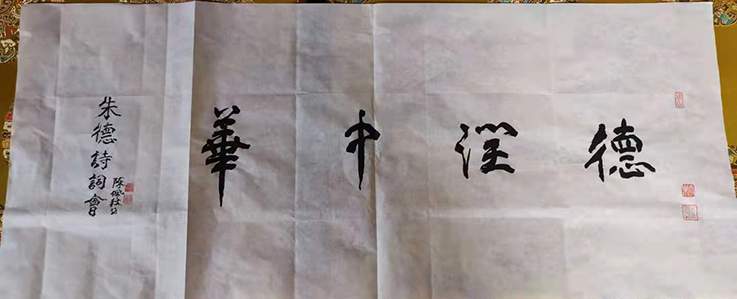 德潤中華
朱德詩詞會